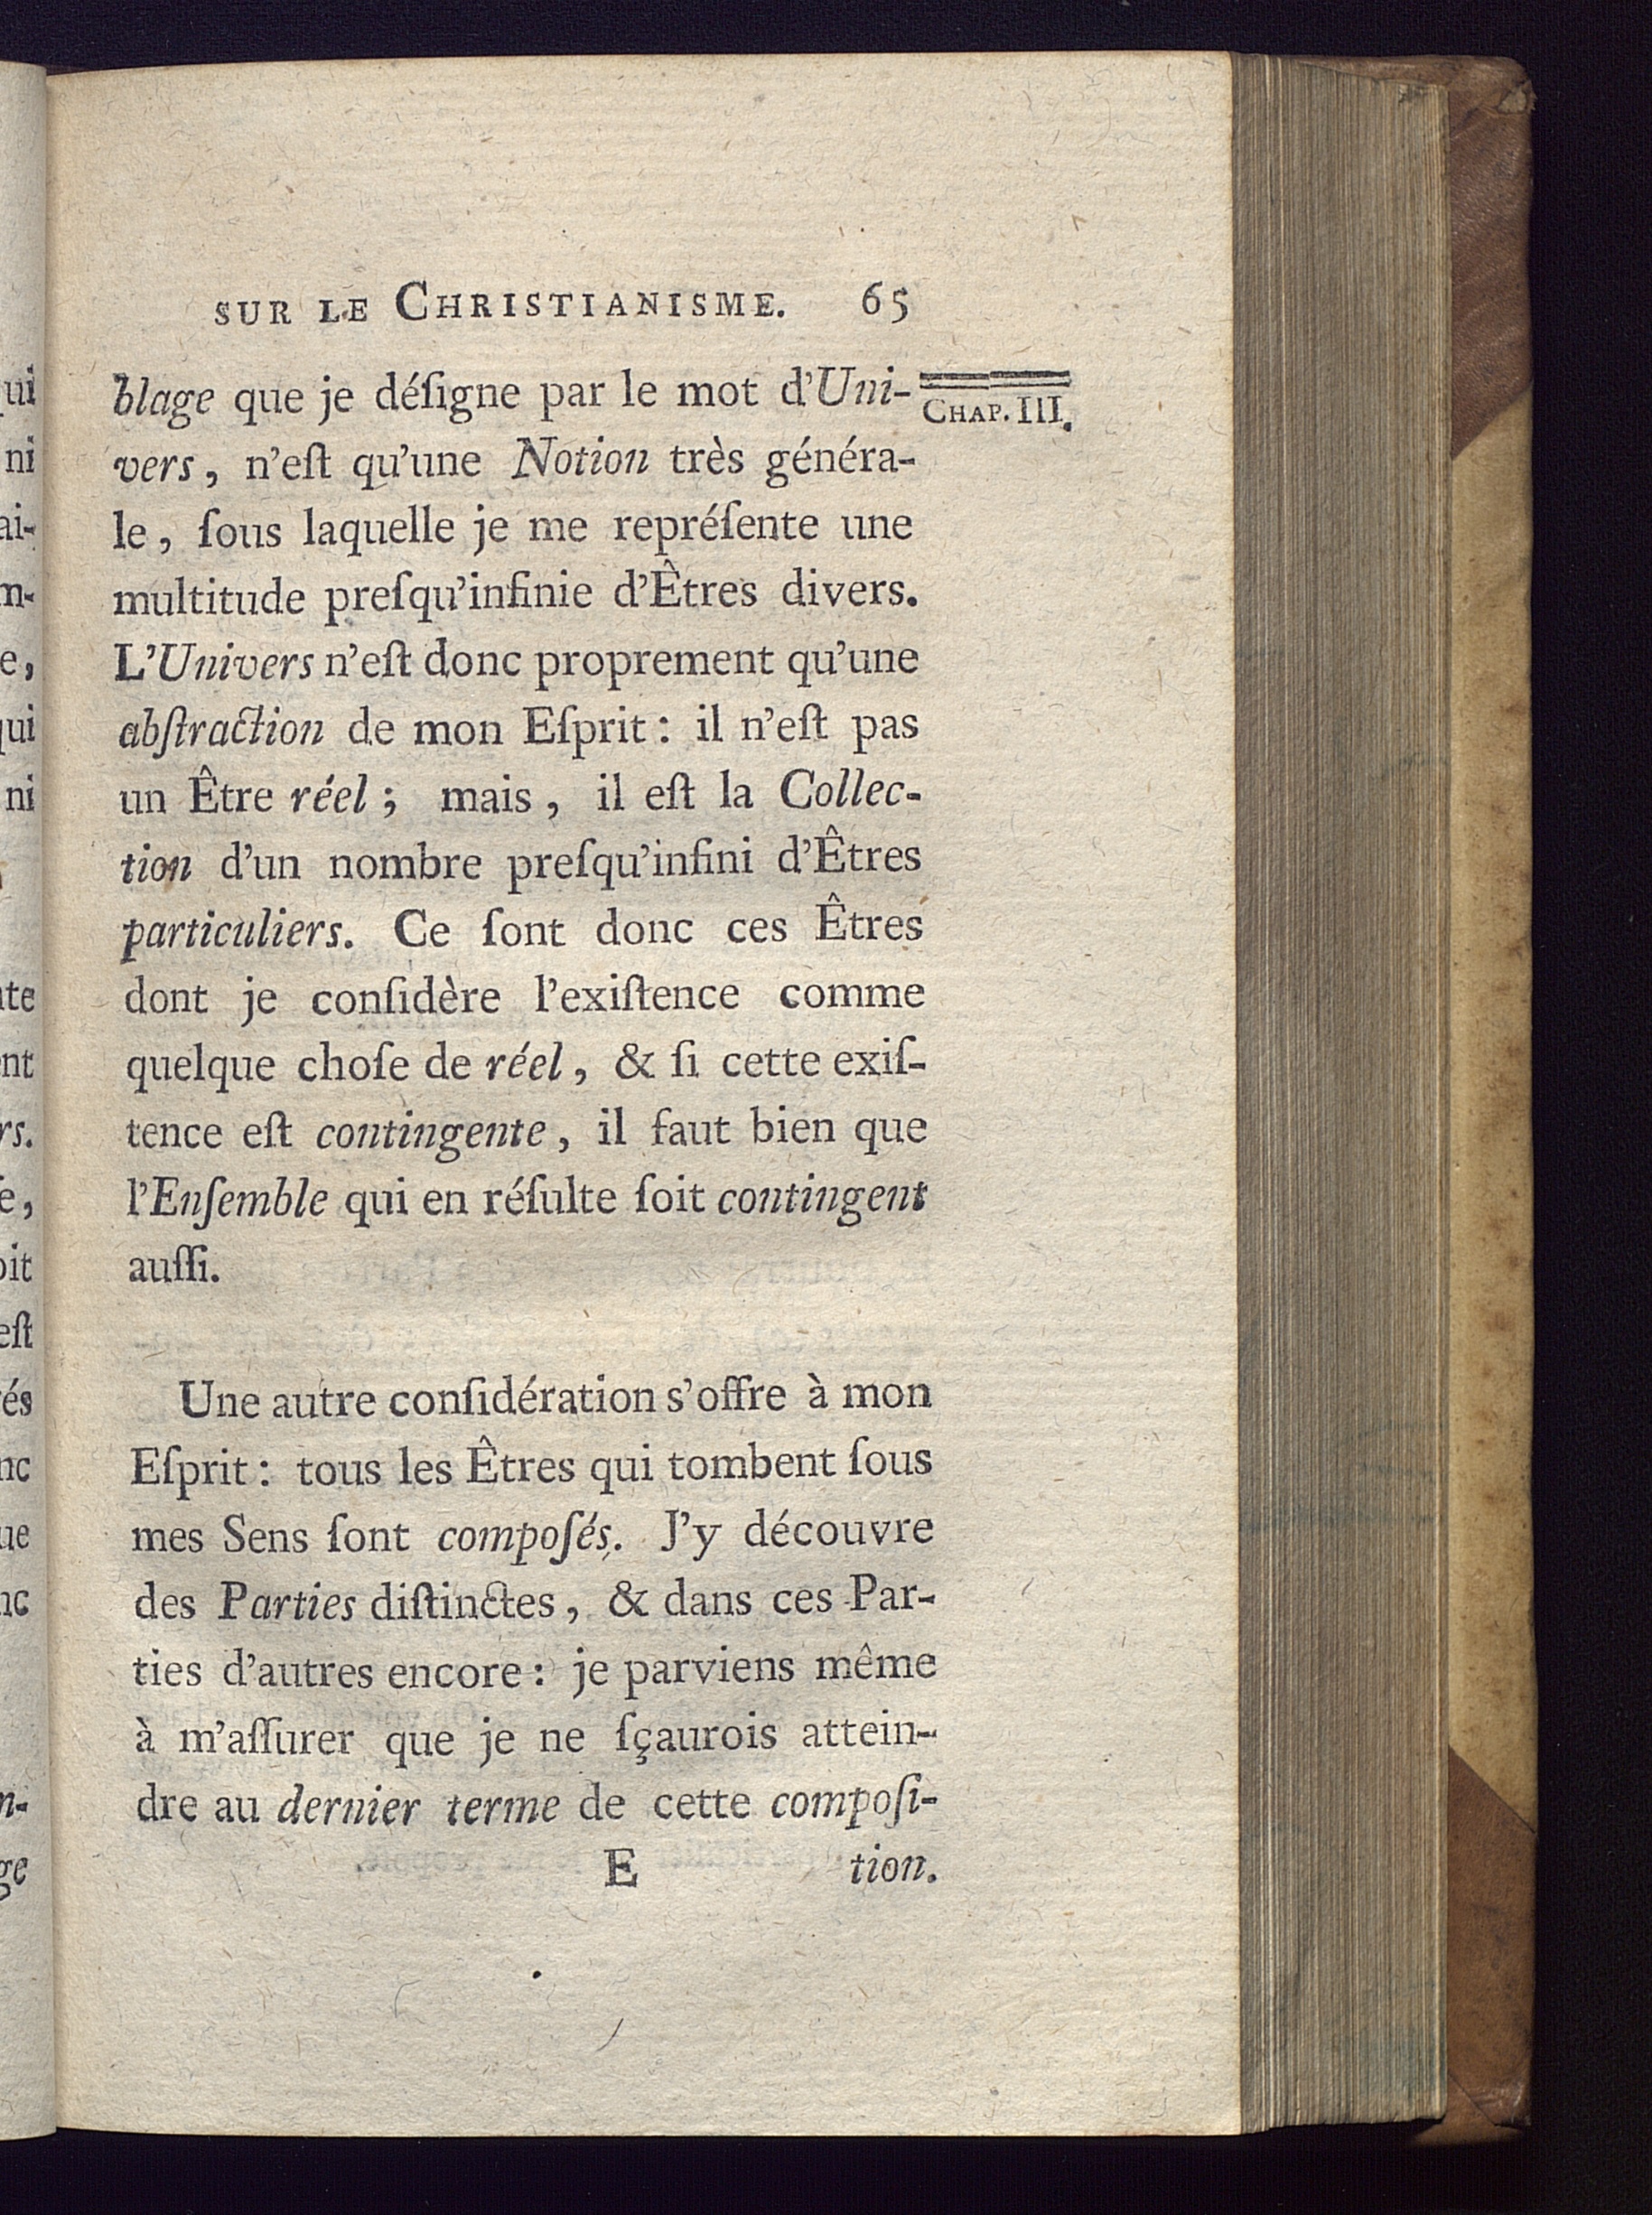 SUR LE CHRISTIANISME. 65
CHAP. III.
blage que je déſigne par le mot d'Uni-
vers, n'eſt qu'une Notion très généra-
le, ſous laquelle je me repréſente une
multitude preſqu'infinie d'Êtres divers.
L'Univers n'eſt donc proprement qu'une
abſtraction de mon Eſprit: il n'eſt pas
un Être réel; mais, il eſt la Collec-
tion d'un nombre preſqu'infini d'Êtres
particuliers. Ce ſont donc ces Êtres
dont je conſidère l'exiſtence comme
quelque choſe de réel, & ſi cette exiſ-
tence eſt contingente, il faut bien que
l'Enſemble qui en réſulte ſoit contingent
auſſi.
Une autre conſidération s'offre à mon
Eſprit: tous les Êtres qui tombent ſous
mes Sens ſont compoſés. J'y découvre
des Parties diſtinctes, & dans ces Par-
ties d'autres encore: je parviens même
à m'aſſurer que je ne ſçaurois attein-
dre au dernier terme de cette compoſi-
E tion.